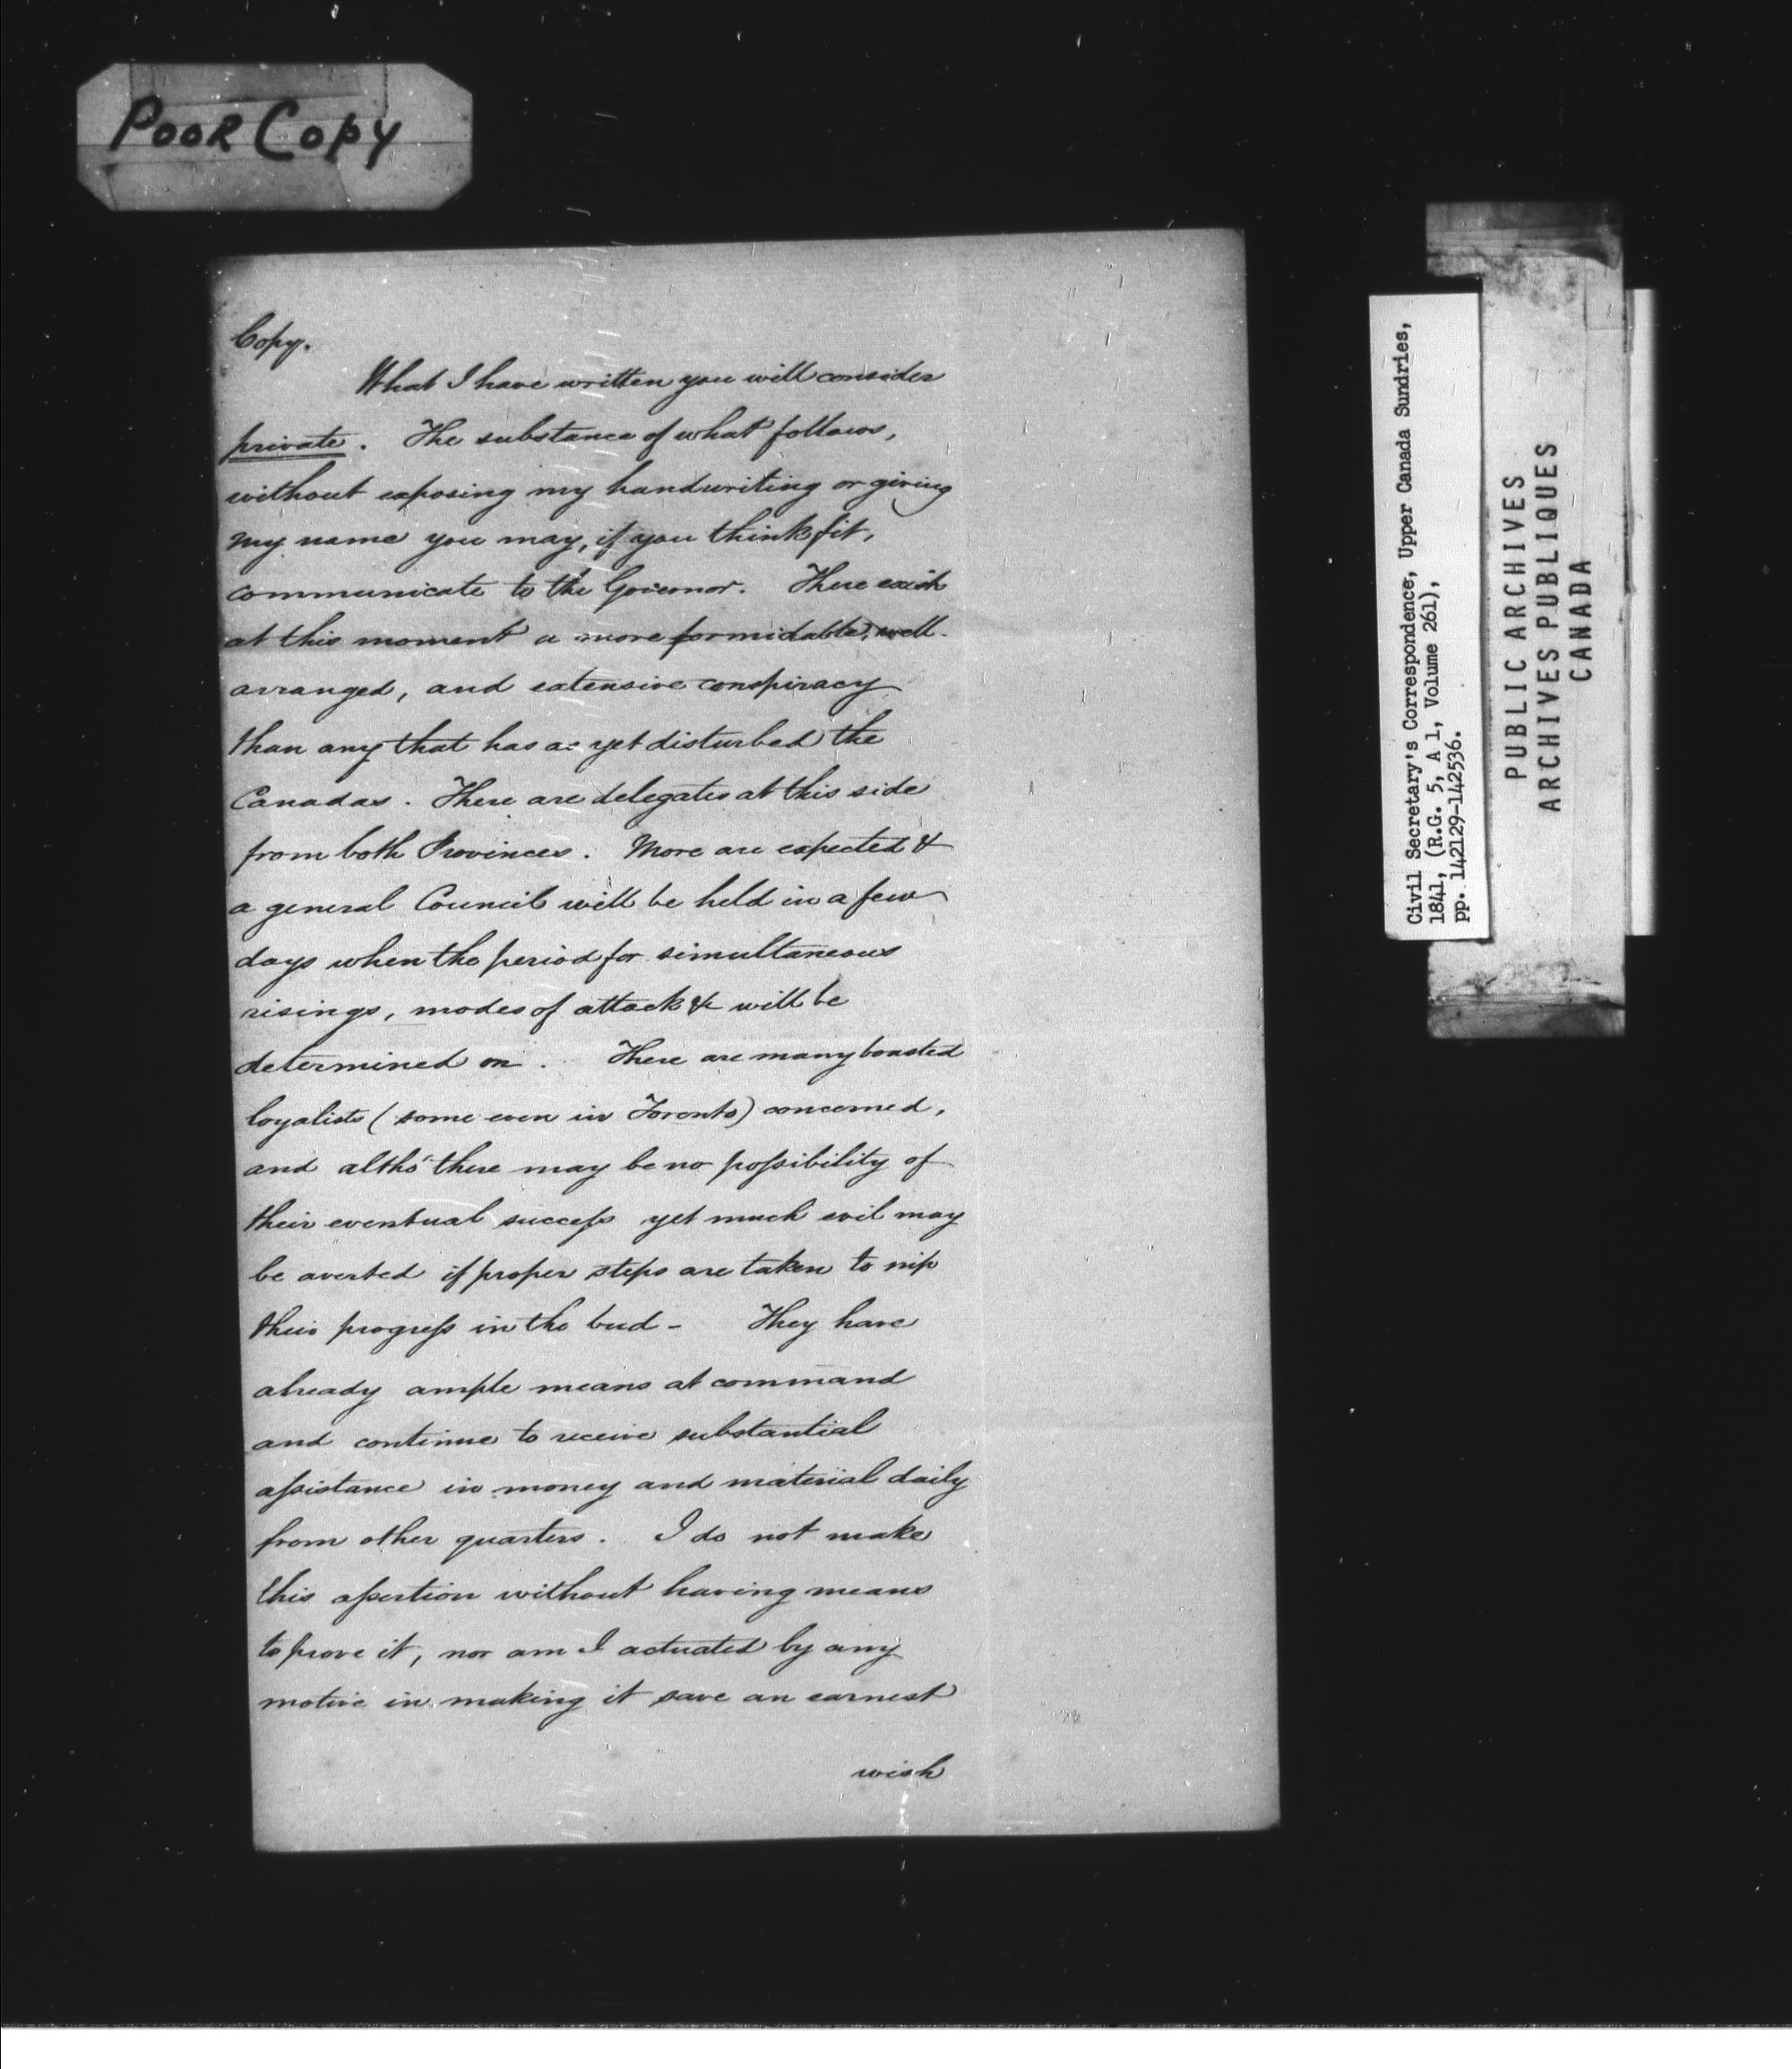 Poor Copy
Copy.
What I have written you will consider
private. The substance of what follows,
without exposing my handwriting or giving
my name you may, if you think fit,
communicate to the Governor. There exist
at this moment a more formidable, well-
arranged, and extensive conspiracy
than any that has as yet disturbed the
Canadas. There are delegates at this side
from both Provinces. More are expected &
a general Council will be held in a few
days when the period for simultaneous
risings, modes of attack &c will be
determined on. There are many boasted
loyalists (some even in Toronto) concerned,
and altho' there may be no possibility of
their eventual success yet much evil may
be averted if proper steps are taken to nip
their progress in the bud - They have
already ample means at command
and continue to receive substantial
assistance in money and material daily
from other quarters. I do not make
this assertion without having means
to prove it, nor am I actuated by any
motive in making it save an earnest
wish
Civil Secretary's Correspondence, Upper Canada Sundries,
1841, (R.G. 5, A 1, Volume 261),
pp. 142129-142536.
PUBLIC ARCHIVES
ARCHIVES PUBLIQUES
CANADA